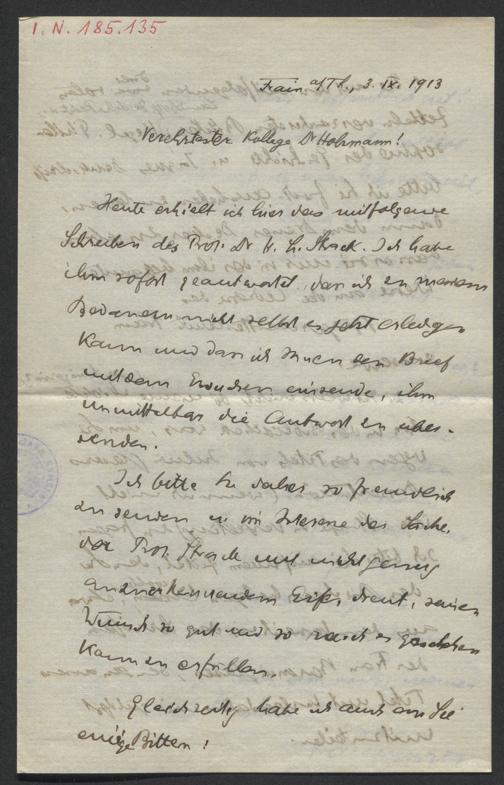 I. N. 185.135
Frain a/Th., 3. IX. 1913
Verehrtester Kollege Dr Holzmann!
Heute erhielt ich hier das mitfolgende
Schreiben des Prof. Dr H. L. Strack. Ich habe
ihm sofort geantwortet, dass ich zu meinem
Bedauern nicht selbst es jetzt erledigen
kann und dass ich Ihnen den Brief
mit dem Ersuchen einsende, ihm
unmittelbar die Antwort zu über-
senden.
Ich bitte Sie daher so freundlich
zu sein im Interesse der Sache,
der Prof. Strack mit nicht genug
anzuerkennendem Eifer dient, seinen
Wunsch so gut und so rasch es geschehen
kann zu erfüllen.
Gleichzeitig habe ich auch an Sie
einige Bitten!